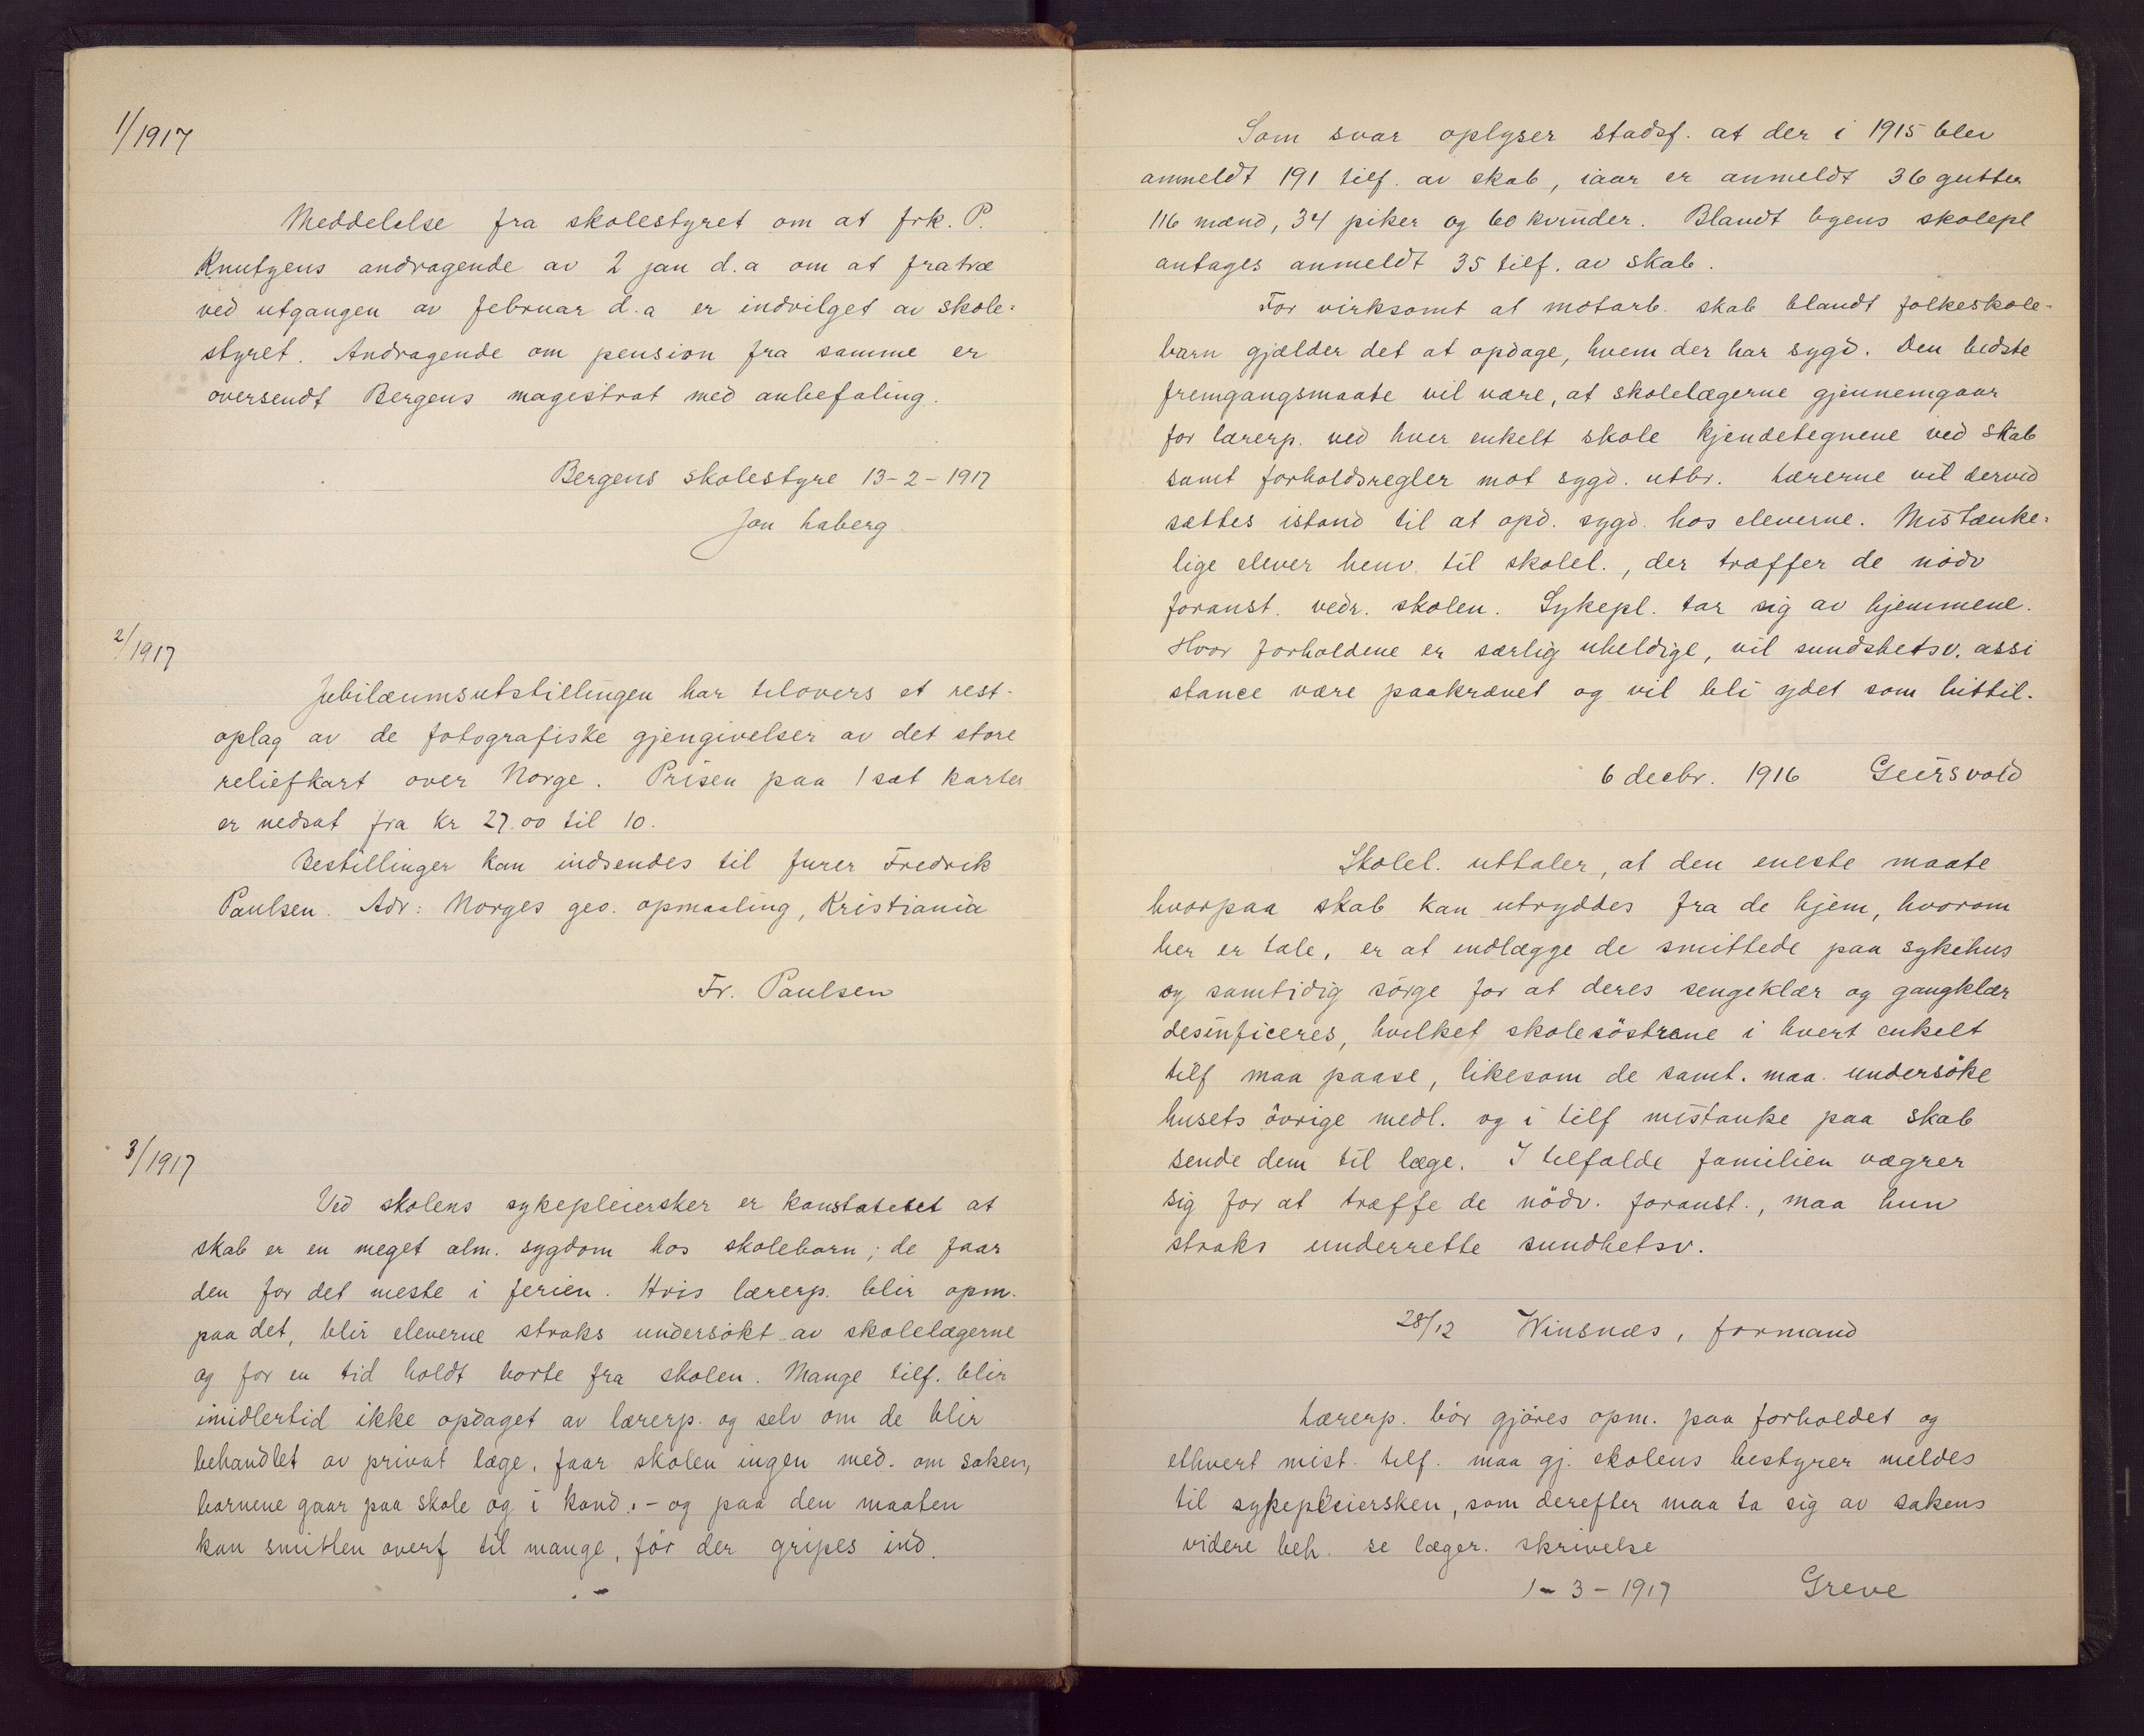 1/1917
Meddelelse fra skolestyret om at frk. P.
Knutgens andragende av 2 jan d.a om at fratræ
ved utgangen av februar d.a er indvilget av skole-
styret. Andragende om pension fra samme er
oversendt Bergens magistrat med anbefaling.
Bergens skolestyre 13-2-1917
Jon Laberg
2/1917
Jubilæumsutstillingen har tilovers et rest-
oplag av de fotografiske gjengivelser av det store
reliefkart over Norge. Prisen paa 1 sæt karter
er nedsat fra kr 27.00 til 10.
Bestillinger kan indsendes til furer Fredrik
Paulsen. Adr: Norges geo. opmaaling, Kristiania
Fr. Paulsen
3/1917
Ved skolens sykepleiersker er konstatetet at
skab er en meget alm. sygdom hos skolebarn; de faar
den for det meste i ferien. Hvis lærerp. blir opm.
paa det, blir eleverne straks undersøkt av skolelægerne
og for en tid holdt borte fra skolen. Mange tilf. blir
imidlertid ikke opdaget av lærerp. og selv om de blir
behandlet av privat læge, faar skolen ingen med. om saken,
barnene gaar paa skole og i kond. - og paa den maaten
kan smitten overf til mange, før der gripes ind.
Som svar oplyser stadsf. at der i 1915 blev
anmeldt 191 tilf. av skab, iaar er anmeldt 36 gutter
116 mænd, 34 piker og 60 kvinder. Blandt byens skolepl
antages anmeldt 35 tilf. av skab.
For virksomt at motarb. skab blandt folkeskole-
barn gjælder det at opdage, hvem der har sygd. Den bedste
fremgangsmaate vil være, at skolelægerne gjennemgaar
for lærerp. ved hver enkelt skole kjendetegnene ved skab
samt forholdsregler mot sygd. utbr. Lærerne vil derved
sættes istand til at opd. sygd. hos eleverne. Mistænke-
lige elever henv. til skolel., der træffer de nödv
foranst. vedr. skolen. Sykepl. tar sig av hjemmene.
Hvor forholdene er særlig uheldige, vil sundshetsv. assi
stance være paakrævet og vil bli ydet som hittil.
6 decbr. 1916 Geirsvold
Skolel. uttaler, at den eneste maate
hvorpaa skab kan utryddes fra de hjem, hvorom
her er tale, er at indlægge de smittede paa sykehus
og samtidig sörge for at deres sengeklær og gangklær
desinficeres, hvilket skolesöstrene i hvert enkelt
tilf maa paase, likesom de samt. maa undersöke
husets övrige medl. og i tilf mistanke paa skab
sende dem til læge. I tilfælde familien vægrer
sig for at træffe de nödv. foranst., maa hun
straks underrette sundhetsv.
28/12 Winsnæs, formand
Lærerp. bör gjöres opm. paa forholdet og
ethvert mist. tilf. maa gj. skolens bestyrer meldes
til sykepleiersken, som derefter maa ta sig av sakens
videre beh. se læger. skrivelse
1-3-1917 Greve